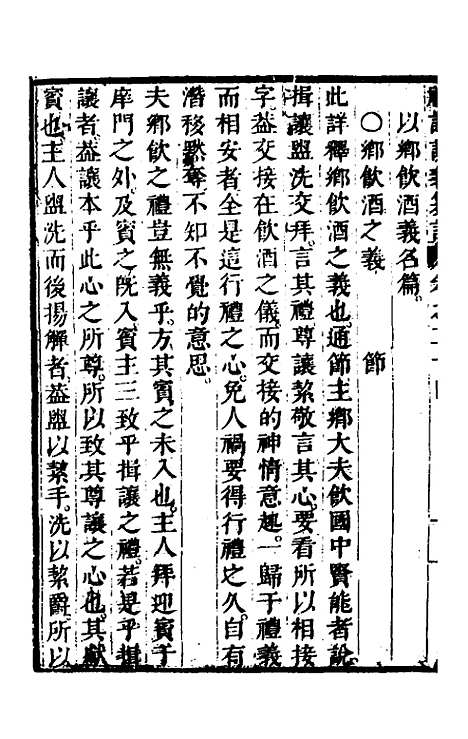 以鄉飲酒義名篇。
〇鄉飲酒之義　　　節
此詳釋鄉飲酒之義也。通節主鄉大夫飲國中賢能者說
揖讓盥洗交拜。言其禮尊讓絜敬言其心。要看所以相接
字。葢交接在飲酒之儀。而交接的神情意趣。一歸于禮義
而相安者全是這行禮之心。免人禍要得行禮之久。自有
潛移默奪不知不覺的意思。
夫鄉飲之禮豈無義乎。方其賓之未入也。主人拜迎賓于
庠門之外。及賓之旣入。賓主三致乎揖讓之禮。若是乎揖
讓者。葢讓本乎此心之所尊。所以致其尊讓之心也。其獻
賓也。主人盥洗而後揚觶者。葢盥以絜手。洗以絜爵。所以